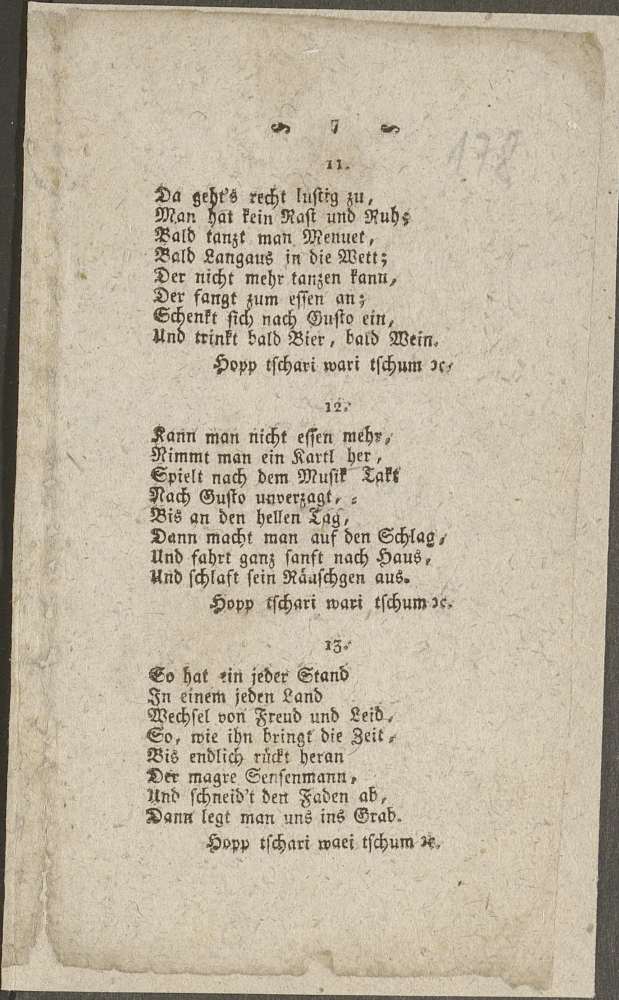 7
178
11.
Da geht's recht lustig zu,
Man hat kein Rast und Ruh;
Bald tanzt man Menuet,
Bald Langaus in die Wett;
Der nicht mehr tanzen kann,
Der fangt zum essen an;
Schenkt sich nach Gusto ein,
Und trinkt bald Bier, bald Wein.
Hopp tschari wari tschum ꝛc.
12.
Kann man nicht essen mehr,
Nimmt man ein Kartl her,
Spielt nach dem Musik Takt
Nach Gusto unverzagt,
Bis an den hellen Tag,
Dann macht man auf den Schlag,
Und fahrt ganz sanft nach Haus,
Und schlaft sein Räuschgen aus.
Hopp tschari wari tschum ꝛc.
13.
So hat ein jeder Stand
In einem jeden Land
Wechsel von Freud und Leid,
So, wie ihn bringt die Zeit,
Bis endlich rückt heran
Der magre Sensenmann,
Und schneid't den Faden ab,
Dann legt man uns ins Grab.
Hopp tschari waei tschum ꝛc.